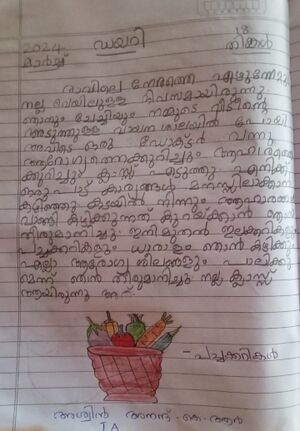 2024 ഡയറി 18
മാർച്ച് തിങ്കൾ
രാവിലെ നേരത്തെ എഴുന്നേറ്റു
നല്ല വെയിലുള്ള ദിവസമായിരുന്നു
ഞാനും ചേച്ചിയും നമ്മുടെ വീടിന്റെ
അടുത്തുള്ള വായന ശാലയിൽ പോയി
അവിടെ ഒരു ഡോക്ടർ വന്നു
ആരോഗ്യത്തെക്കുറിച്ചും ആഹാരത്തെ
ക്കുറിച്ചും ക്ലാസ്സ് എടുത്തു എനിക്ക്
ഒരുപാട് കാര്യങ്ങൾ മനസ്സിലാക്കാൻ
കഴിഞ്ഞു കടയിൽ നിന്നും ആഹാരങ്ങൾ
വാങ്ങി കഴിക്കുന്നത് കുറയ്ക്കാൻ ഞാൻ
തീരുമാനിച്ചു ഇനിമുതൽ ഇലക്കറികളും
പച്ചക്കറികളും ധാരാളം ഞാൻ കഴിക്കും
എല്ലാ ആരോഗ്യ ശീലങ്ങളും പാലിക്കു
മെന്ന് ഞാൻ തീരുമാനിച്ചു നല്ല ക്ലാസ്സ്
ആയിരുന്നു അത്.
- പച്ചക്കറികൾ
അശ്വിൻ ആനന്ദ്. കെ. ആർ
I A